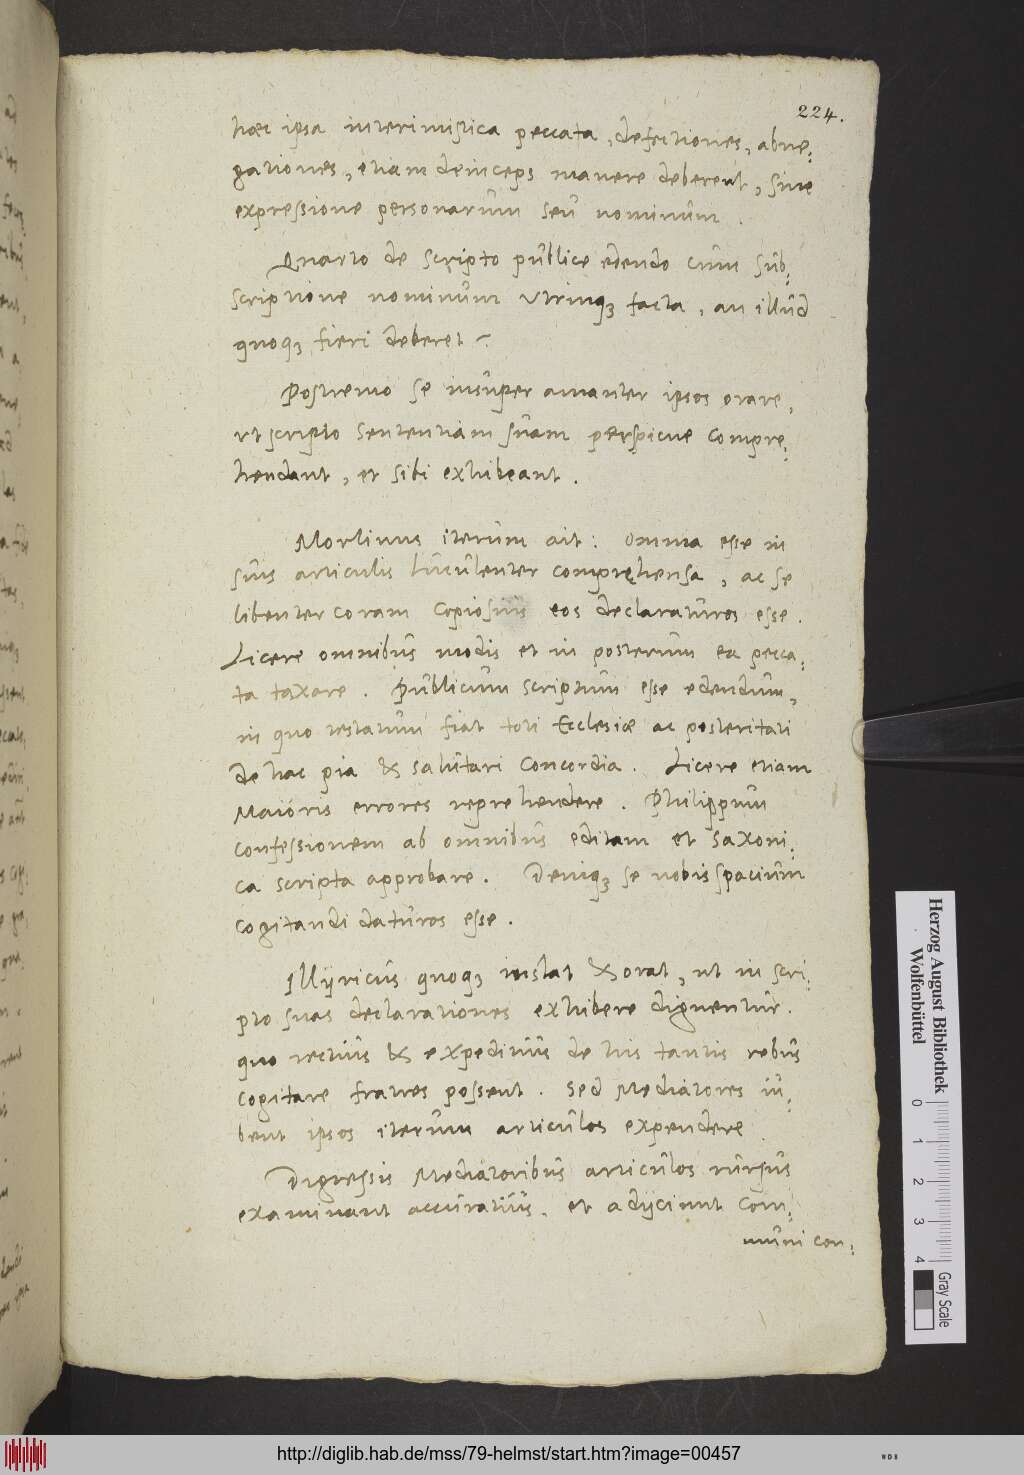 224.
haec ipsa interimistica peccata, defectiones, abne:
gationes, etiam deinceps manere deberent, sine
expressione personarum seu nominum.
Quarto de scripto publice edendo cum sub:
scriptione nominum utrinqꝫ facta, an illud
quoqꝫ fieri deberet.
Postremo se insuper amanter ipsos orare,
ut scripto sententiam suam perspicue compre:
hendant, et sibi exhibeant.
Morlinus iterum ait: omnia esse in
suis articulis luculenter comprehensa, ac se
libenter coram copiosius eos declaraturos esse.
Licere omnibus modis et in posterum ea pecca:
ta taxare. Publicum scriptum esse edendum,
in quo testatum fiat toti Ecclesiae ac posteritati
de hac pia & salutari concordia. Licere etiam
Maioris errores reprehendere. Philippum
confessionem ab omnibus editam et Saxoni:
ca scripta approbare. Deniqꝫ se nobis spacium
cogitandi daturos esse.
Illyricus quoqꝫ instat & orat, ut in scri:
pto suas declarationes exhibere dignentur.
quo rectius & expeditius de his tantis rebus
cogitare fratres possent. Sed Mediatores iu:
bent ipsos iterum articulos expendere.
Digressis Mediatoribus articulos rursus
examinant accuratius, et adijciunt com:
muni con:
Herzog August Bibliothek
Wolfenbüttel
0 1 2 3 4
Gray Scale
http://diglib.hab.de/mss/79-helmst/start.htm?image=00457
WDB